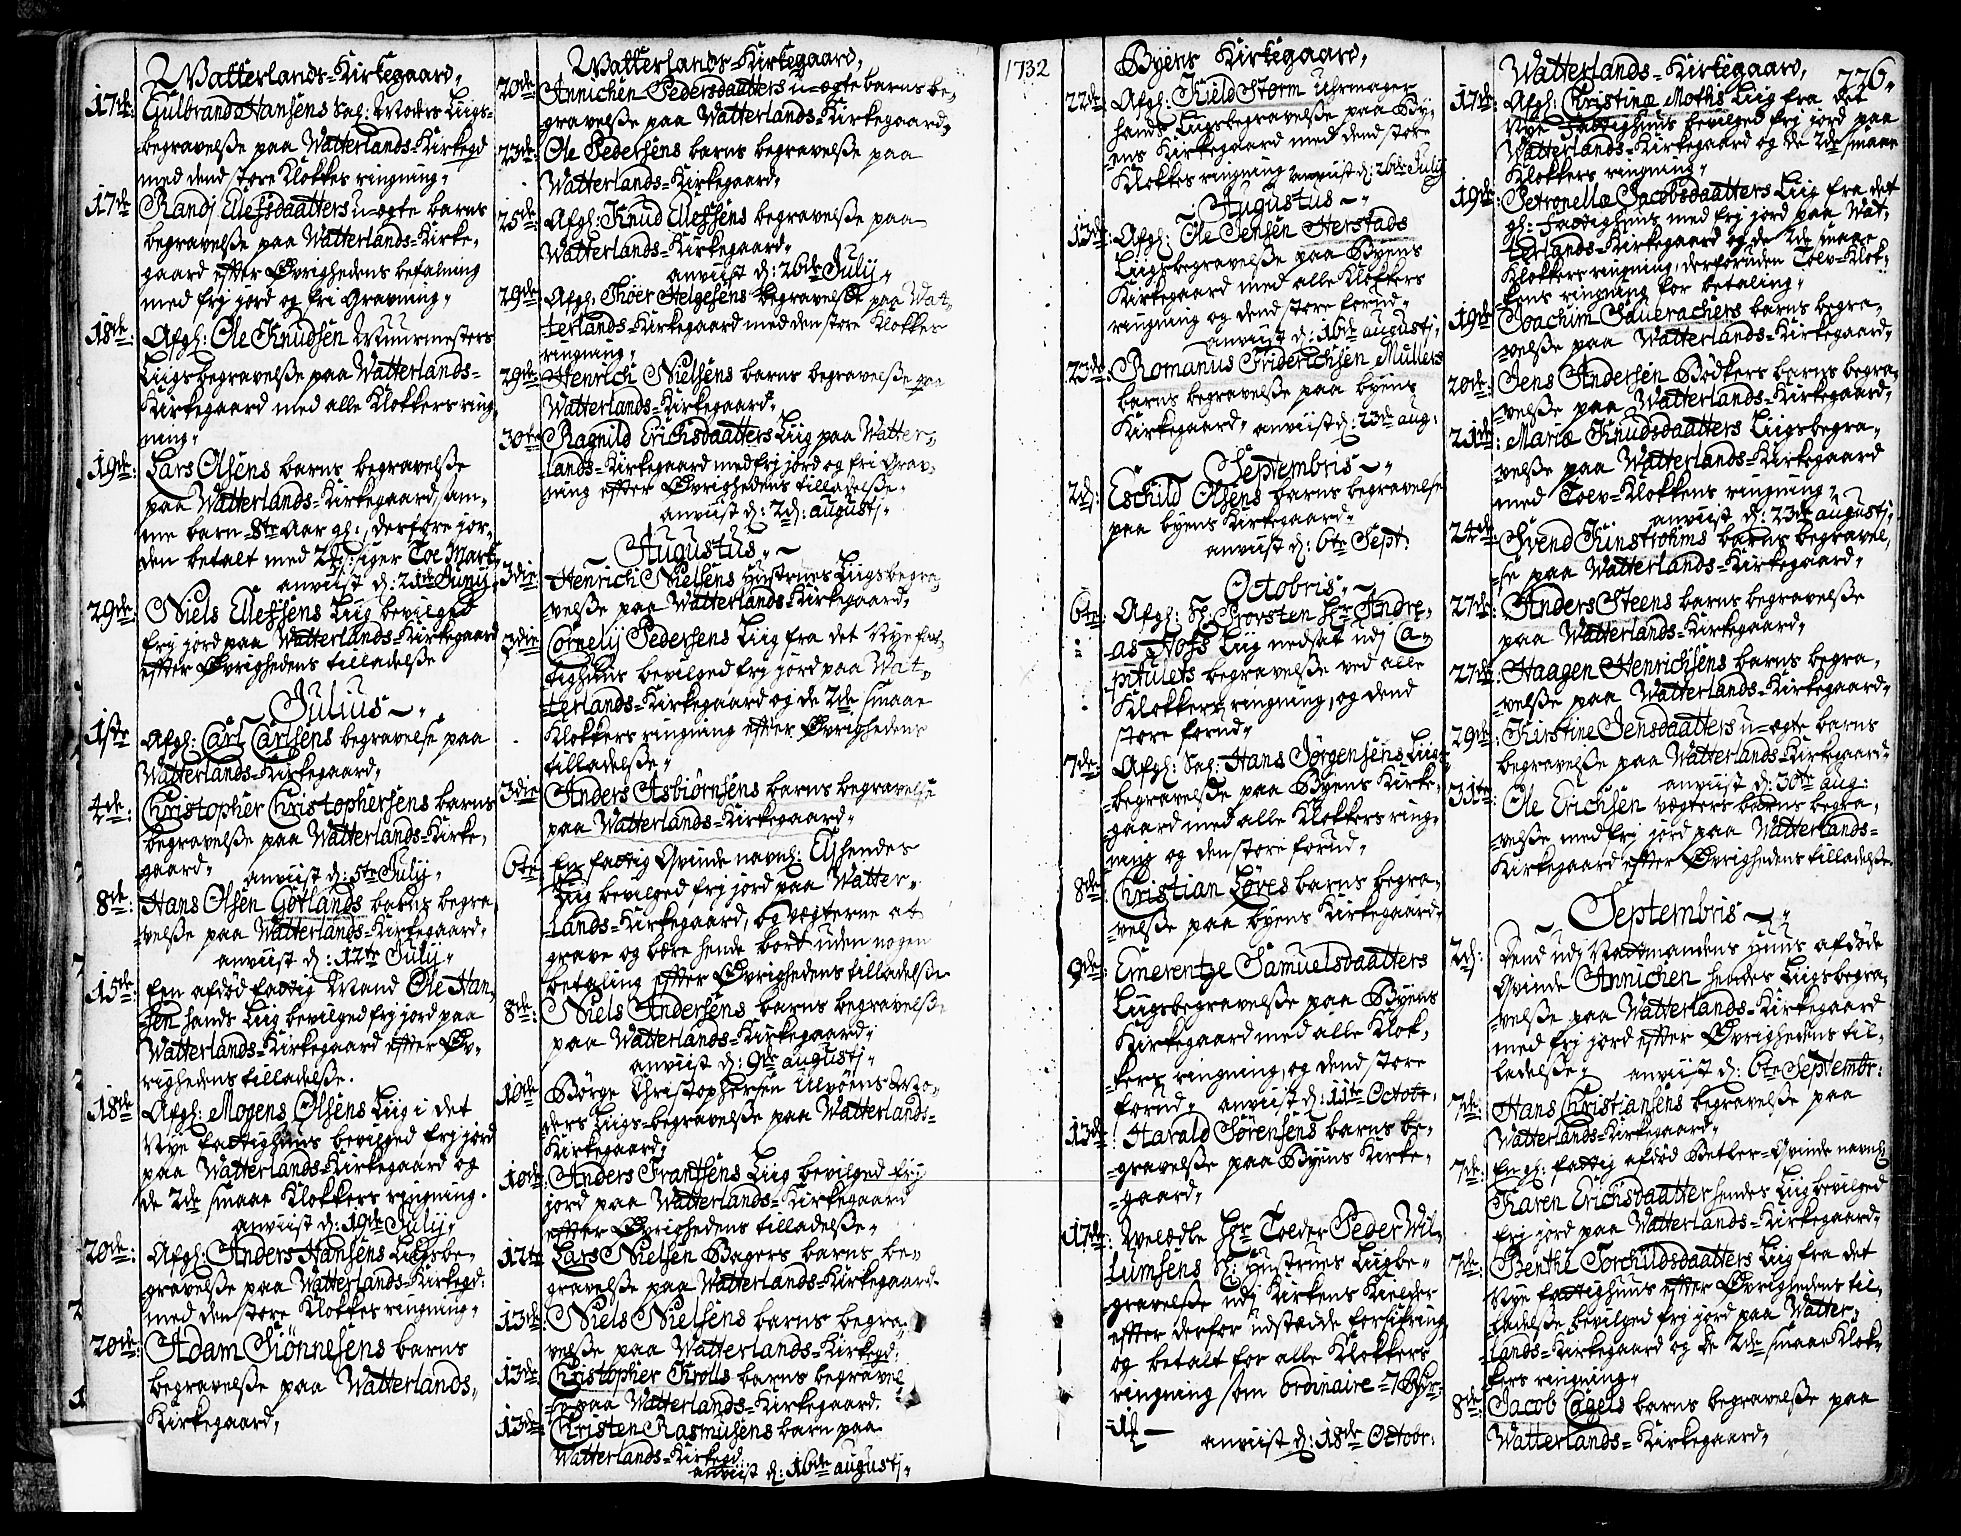 Watterlands-Kirkegaard,
17de: Gulbrand Hansens Sal: Moders Liigs-
begravelsse paa Watterlands-Kirkegd
med dend store Klokkes ringning,
17de Randj Ellefsdaatters u-ægte barns
begravelsse paa Watterlands-Kirke,
gaard efter Øvrighedens befalning
med frj jord og fri Gravning,
18de: Afgl: Ole Knudsen Muurmesters
Liigsbegravelsse paa Watterlands-
Kirkegaard med alle Klokkers ring,
ning,
19de: Lars Olsens barns begravelsse
paa Watterlands-Kirkegaard, sam-
me barn 8te Aar gl:, derfore jor-
den betalt med 2 siger Toe Mark
anviist d: 21de Junij
29de: Niels Ellefsens Liig bevilged
frj jord paa Watterlands-Kirkegaard
efter Øvrighedens tilladelsse
Julius
1ste Afgl: Carl Carlsens begravelse paa
Watterlands-Kirkegaard,
4de: Christopher Christophersens barns
begravelsse paa Watterlands-Kirke,
gaard, anviist d: 5te Julij,
8de: Hans Olsen Gotlands barns begra,
velsse paa Watterlands-Kirkegaard,
anviist d: 12te Julij,
15de: Een afdød fattig Mand Ole Han,
sen hands Liig bevilged frj jord paa
Watterlands-Kirkegaard efter Øv-
righedens tilladelsse.
18de Afgl: Mogens Olsens Liig i det
Nye fattighuus bevilged frj jord
paa Watterlands-Kirkegaard og
de 2de smaae Klokkers ringning.
anviist d: 19de Julij,
20de: Afgl: Anders Hansens Liigsbe-
gravelsse paa Watterlands-Kirkegd:
med den store Klokkes ringning,
20de: Adam Siønnesens barns
begravelsse paa Watterlands,
Kirkegaard,
Watterlands-Kirkegaard,
20de: Annichen Pedersdaatters u-ægte barns be,
gravelsse paa Watterlands-Kirkegaard,
23de: Ole Pedersens barns begravelsse paa
Watterlands-Kirkegaard,
25de: Afgl: Knud Ellefsens begravelsse paa
Watterlands-Kirkegaard,
anviist d: 26de Julij,
29de: Afgl: Thoer Helgesens begravelsse paa Wat,
terlands-Kirkegaard med den store Klokkes
ringning,
29de: Henrich Nielsens barns begravelsse paa
Watterlands-Kirkegaard,
30te Ragnild Erichsdaatters Liig paa Watter,
lands-Kirkegaard med frj jord og fri Grav,
ning efter Øvrighedens tilladelsse.
anviist d: 2d: augustj,
Augustus
3die: Henrich Nielsens Hustrues Liigsbegra,
velsse paa Watterlands-Kirkegaard,
3die: Cornelij Pedersens Liig fra det Nye fat,
tighuus bevilged frj jord paa Wat,
terlands-Kirkegaard og de 2de smaae
Klokkers ringning efter Øvrighedens
tilladelsse,
3die Anders Asbiørnsens barns begravelsse
paa Watterlands-Kirkegaard,
6te: En fattig Qvinde navnl: Elj hendes
Liig bevilged frj jord paa Watter,
Lands-Kirkegaard, og vægterne at
grave og bære hende bort uden nogen
betaling efter Øvrighedens tilladelsse
8de: Niels Andersens barns begravelsse
paa Watterlands-Kirkegaard,
anviist d: 9de augustj,
10de Børge Christophersen Ulvøens Mo,
ders Liigs-begravelsse paa Watterlands-
Kirkegaard,
10de: Anders Frantsens Liig bevilged frj
jord paa Watterlands-Kirkegaard
efter Øvrighedens tilladelsse,
12te Lars Nielsen Bagers barns be,
gravelsse paa Watterlands-Kirkegaard.
13de: Niels Nielsens barns begra,
velsse paa Watterlands-Kirkegd:
13de: Christopher Krolls barns begravel
se paa Watterlands-Kirkegaard.
13de: Christen Rasmusens barn paa
Watterlands-Kirkegd
anviist d: 16de augustj,
1732
Byens Kirkegaard,
22de: Afgl: Kield Storm Uhrmager
hands Liigsbegravelsse paa By,
ens Kirkegaard med dend store
Klokkes ringning anviist d: 26de Julij
Augustus
13de: Afgl: Ole Jensen Herstads
Liigsbegravelsse paa Byens
Kirkegaard med alle Klokkers
ringning og dend store forud,
anviist d: 16de augustj,
23de: Romanus Friderichsen Mullers
barns begravelsse paa byens
Kirkegaard, anviist d: 23de aug:
Septembris
2d: Eschild Olsens barns begravelse
paa byens Kirkegaard,
anviist d: 6te Sept:
Octobris
6te: Afgl: H: Provsten Hr Andre,
as Hofs Liig nedsat udj Ca,
pitulets begravelsse ved alle
Klokkers ringning, og dend
store forud,
7de: Afgl: Sal: Hans Jørgensens Liigs,
begravelsse paa Byens Kirke,
gaard med alle Klokkers ring,
ning og den store forud,
8de Christian Løves barns begra,
velsse paa byens Kirkegaard,
9de: Emerentze Samuelsdaatters
Liigsbegravelsse paa Byens
Kirkegaard med alle Klok,
kers ringning, og dend store
forud, anviist d: 11te Octobr,
13de: Harald Sørensens barns be,
gravelsse paa Byens Kirke,
gaard,
17de: Welædle Hr Toeder Peder Wil,
lumsens H: Hustrues Liigbe,
gravelsse udj Kirkens Kielder
efter derfor udstædde forsikring,
og betalt for alle Klokkers
ringning som ordinaire 7
anviist d: 18de Octobr:
Watterlands-Kirkegaard, 226.
17de: Afgl: Christine Moths Liig fra det
Nye Fattighuus bevilged frj jord paa
Watterlands-Kirkegaard og de 2de smaae
Klokkers ringning,
19de: Petronellæ Jacobsdaatters Liig fra det
gl: Fattighuus med frj jord paa Wat,
terlands-Kirkegaard og de 2de smaae
Klokkers ringning, derforuden Toev-Klok,
kens ringning for betaling,
19de Joachim Sauerachers barns begra,
velsse paa Watterlands-Kirkegaard,
20de: Jens Andersen Bødkers barns begra,
velsse paa Watterlands-Kirkegaard,
21de: Mariæ Knudsdaatters Liigsbegra,
velsse paa Watterlands-Kirkegaard
med Toev-Klokkens ringning,
anviist d: 23de augustj,
24de: Svend Kunstrohms barns begravel,
se paa Watterlands-Kirkegaard,
27de: Anders Steens barns begravelsse
paa Watterlands-Kirkegaard,
27de: Haagen Henrichsens barns begra,
velsse paa Watterlands-Kirkegaard,
29de: Kirstine Jensdaatters u-ægte barns
begravelsse paa Watterlands-Kirkegaard,
anviist d: 30te aug:
31te: Ole Erichsen vægters barns begra,
velsse med frj jord paa Watterlands-
Kirkegaard efter Øvrighedens tilladelsse.
Septembris
2d: Dend udj Natmandens Huus afdøde
Qvinde Annichen hendes Liigsbegra,
velsse paa Watterlands-Kirkegaard
med frj jord efter Øvrighedens til,
ladelsse, anviist d: 6te Septembr:
7de: Hans Christiansens begravelsse paa
Watterlands-Kirkegaard,
7de: En gl: fattig afdød Betler-Qvinde navnl:
Karen Erichsdaatter hendes Liig bevilged
frj jord paa Watterlands-Kirkegaard,
7de: Benthe Torchildsdaatters Liig fra det
Nye fattighuus efter Øvrighedens til,
ladelsse bevilged frj jord paa Watter,
lands-Kirkegaard og de 2de smaae Klok,
kers ringning,
8de: Jacob Cagels barns begravelsse paa
Watterlands-Kirkegaard,